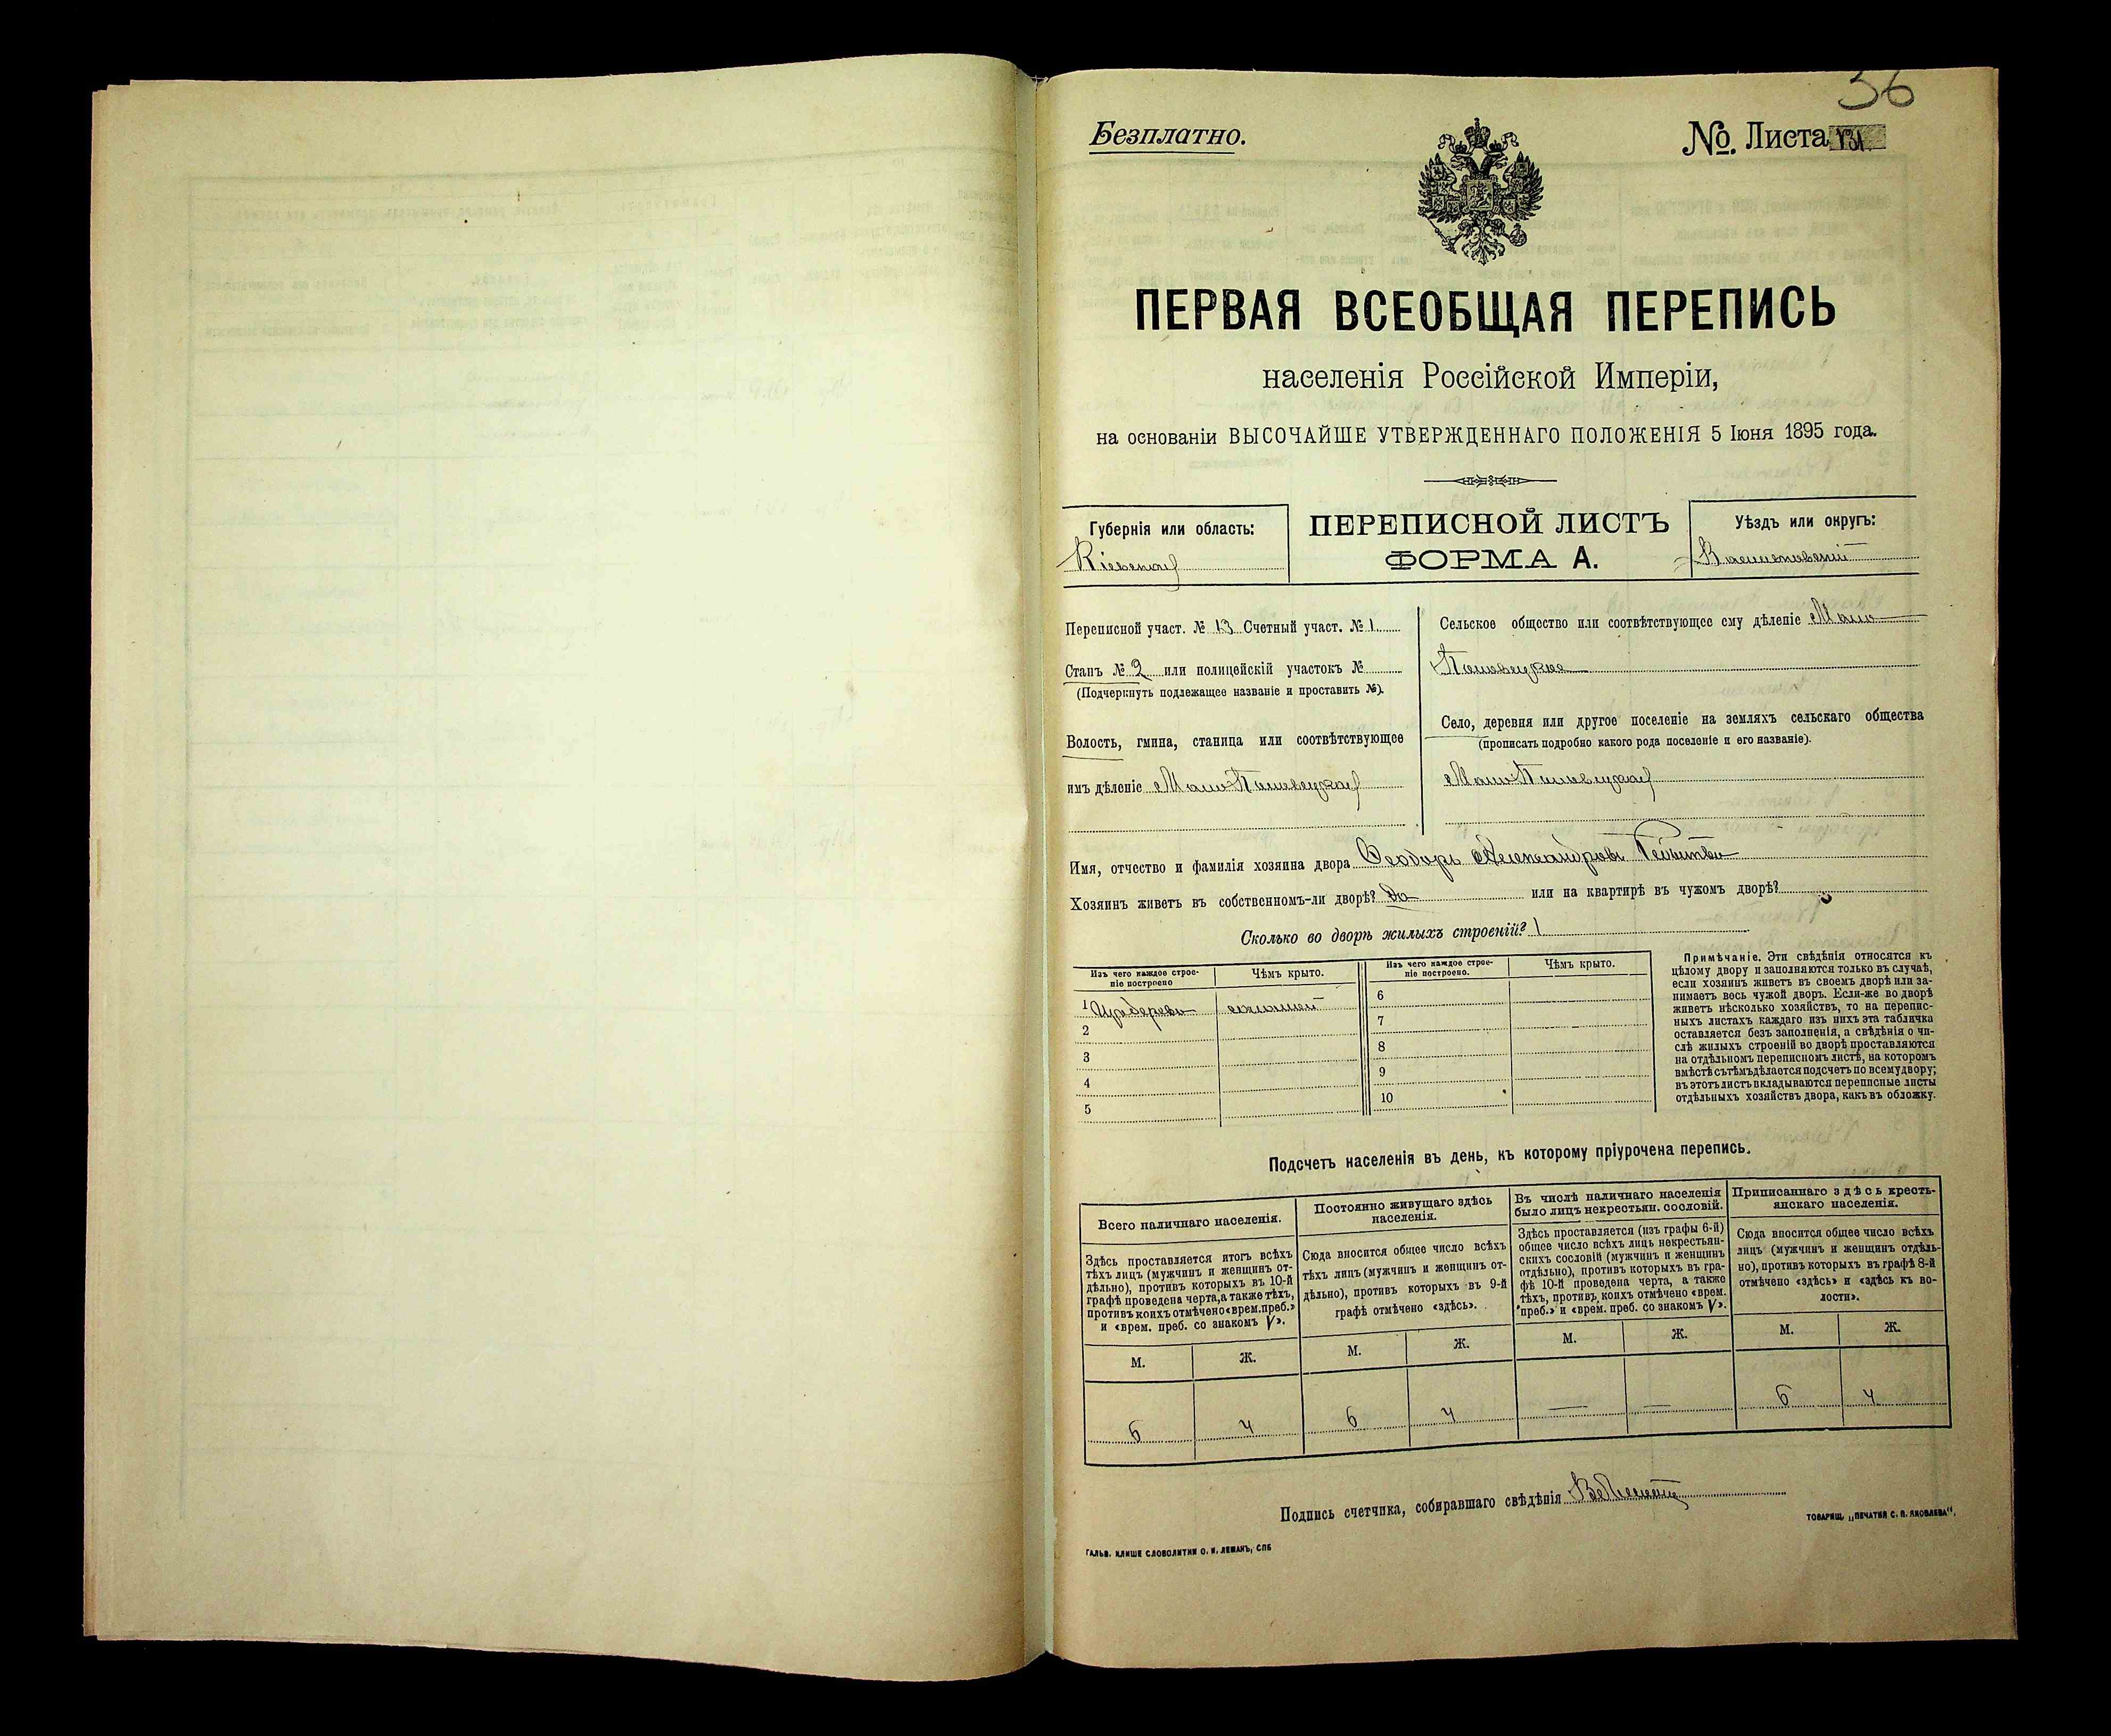 36
Безплатно.
№ Листа
ПЕРВАЯ ВСЕОБЩАЯ ПЕРЕПИСЬ
населенія Россійской Имперіи,
на основаніи ВЫСОЧАЙШЕ УТВЕРЖДЕННАГО ПОЛОЖЕНІЯ 5 Іюня 1895 года.
Губернія или область:
Кіевская
ПЕРЕПИСНОЙ ЛИСТЪ
ФОРМА А.
Уѣздъ или округъ:
Переписной участ. № 13 Счетный участ. № 1
Станъ № 2 или полицейскій участокъ №
(Подчеркнуть подлежащее названіе и проставить №).
Волость, гмина, станица или соотвѣтствующее
имъ дѣленіе
Сельское общество или соотвѣтствующее ему дѣленіе
Село, деревня или другое поселеніе на земляхъ сельскаго общества
(прописать подробно какого рода поселеніе и его названіе).
Имя, отчество и фамилія хозяина двора Ѳеодоръ Александровъ
Хозяинъ живетъ въ собственномъ-ли дворѣ? Да или на квартирѣ въ чужомъ дворѣ?
Сколько во дворѣ жилыхъ строеній? 1
Изъ чего каждое строе-
ніе построено
Чѣмъ крыто.
Изъ чего каждое строе-
ніе построено.
Чѣмъ крыто.
1 Из дерева соломой
2
3
4
5
6
7
8
9
10
Примѣчаніе. Эти свѣдѣнія относятся къ
цѣлому двору и заполняются только въ случаѣ,
если хозяинъ живетъ въ своемъ дворѣ или за-
нимаетъ весь чужой дворъ. Если-же во дворѣ
живетъ нѣсколько хозяйствъ, то на перепис-
ныхъ листахъ каждаго изъ нихъ эта табличка
оставляется безъ заполненія, а свѣдѣнія о чи-
слѣ жилыхъ строеній во дворѣ проставляются
на отдѣльномъ переписномъ листѣ, на которомъ
вмѣстѣ съ тѣмъ дѣлается подсчетъ по всему двору;
въ этотъ листъ вкладываются переписные листы
отдѣльныхъ хозяйствъ двора, какъ въ обложку.
Подсчетъ населенія въ день, къ которому пріурочена перепись.
Всего наличнаго населенія.
Постоянно живущаго здѣсь
населенія.
Въ числѣ наличнаго населенія
было лицъ некрестьян. сословій.
Приписаннаго здѣсь кресть-
янскаго населенія.
Здѣсь проставляется итогъ всѣхъ
тѣхъ лицъ (мужчинъ и женщинъ от-
дѣльно), противъ которыхъ въ 10-й
графѣ проведена черта, а также тѣхъ,
противъ коихъ отмѣчено «врем. преб.»
и «врем. преб. со знакомъ V».
Сюда вносится общее число всѣхъ
тѣхъ лицъ (мужчинъ и женщинъ от-
дѣльно), противъ которыхъ въ 9-й
графѣ отмѣчено «здѣсь».
Здѣсь проставляется (изъ графы 6-й)
общее число всѣхъ лицъ некрестьян-
скихъ сословій (мужчинъ и женщинъ
отдѣльно), противъ которыхъ въ гра-
фѣ 10-й проведена черта, а также
тѣхъ, противъ коихъ отмѣчено «врем.
преб.» и «врем. преб. со знакомъ V».
Сюда вносится общее число всѣхъ
лицъ (мужчинъ и женщинъ отдѣль-
но), противъ которыхъ въ графѣ 8-й
отмѣчено «здѣсь» и «здѣсь къ во-
лости».
М. Ж. М. Ж. М. Ж. М. Ж.
6 4 6 4 — — 6 4
Подпись счетчика, собиравшаго свѣдѣнія
ТОВАРИЩ. „ПЕЧАТНЯ С. П. ЯКОВЛЕВА“.
ГАЛЬВ. КЛИШЕ СЛОВОЛИТНИ О. И. ЛЕМАНЪ, СПБ